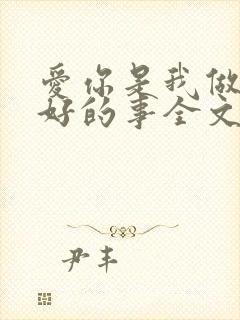 爱你是我做
好的事全文
尹丰